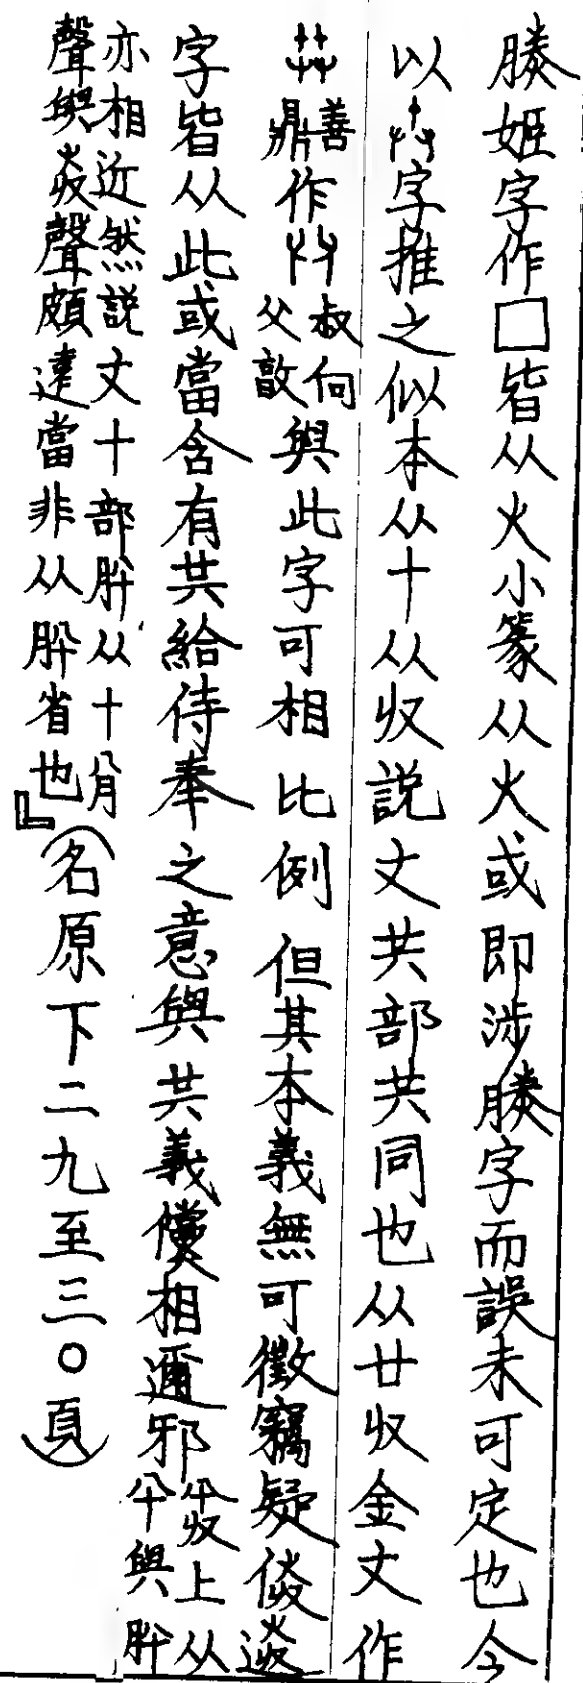 媵姬字作□皆从火小篆从火或即涉媵字而誤未可定也今
以字推之似本从十从収説文共部共同也从廿収金文作
善鼎作叔向父敦與此字可相比例但其本義無可徵竊疑
字皆从此或當含有共給待奉之意與共義儻相邇邪上从
亦相近然説文十部肸从十㕣與肸
聲與聲頗遠當非从肸省也』(名原下二九至三〇頁)